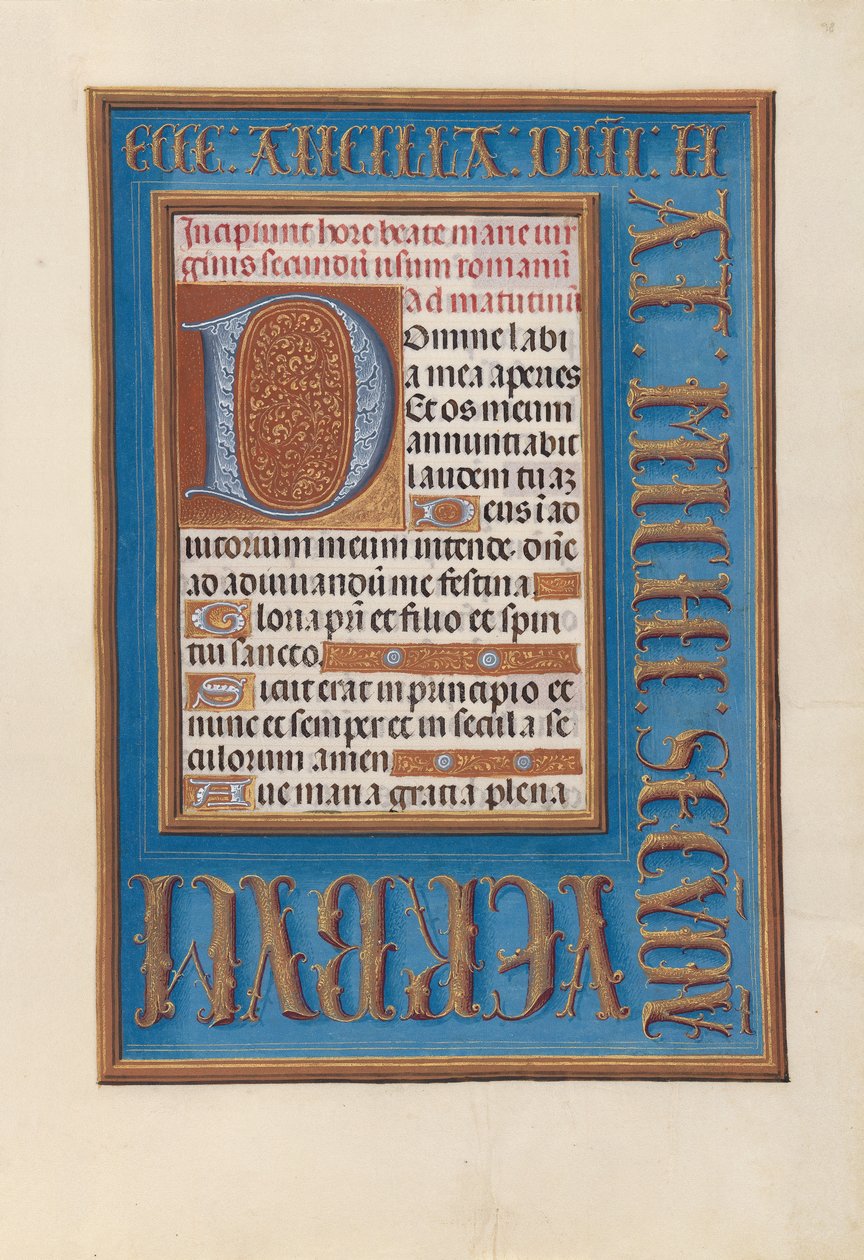 98
ECCE : ANCILLA : DN̄I : FI
AT · MICHI · SECV̄DV̄
VERBVM
Incipiunt hore beate marie vir
ginis secundū usum romanū
Ad matutinū
Domine labi
a mea aperies
Et os meum
annuntiabit
laudem tuaꝫ
Deus ī ad
iutorium meum intende. dn̄e
ad adiuuandū me festina.
Gloria pr̄i et filio et spiri
tui sancto.
Sicut erat in principio et
nunc et semper et in secula se
culorum amen
Aue maria gratia plena